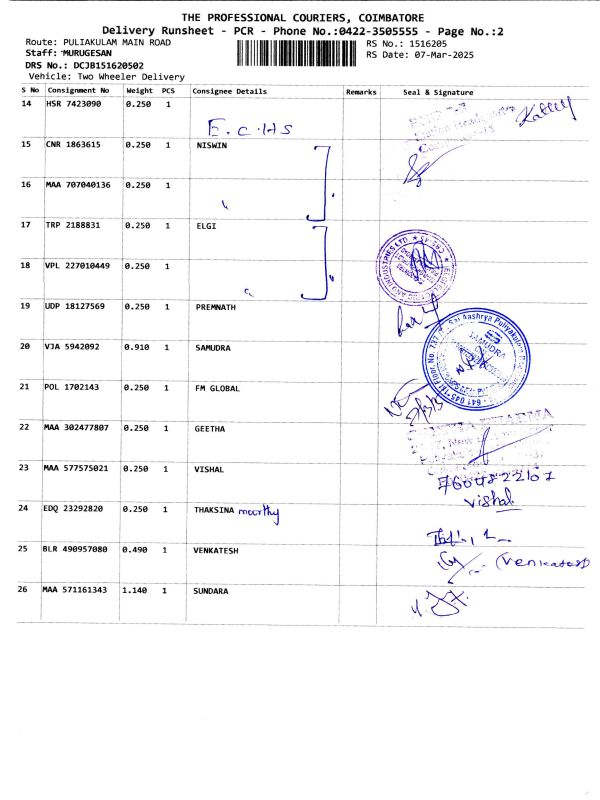 THE PROFESSIONAL COURIERS, COIMBATORE
Delivery Runsheet - PCR - Phone No.:0422-3505555 - Page No.:2
Route: PULIAKULAM MAIN ROAD RS No.: 1516205
Staff: MURUGESAN RS Date: 07-Mar-2025
DRS No.: DCJB151620502
Vehicle: Two Wheeler Delivery
S No Consignment No Weight PCS Consignee Details Remarks Seal & Signature
14 HSR 7423090 0.250 1
E.C.HS
15 CNR 1863615 0.250 1 NISWIN
16 MAA 707040136 0.250 1
17 TRP 2188831 0.250 1 ELGI
18 VPL 227010449 0.250 1
19 UDP 18127569 0.250 1 PREMNATH
20 VJA 5942092 0.910 1 SAMUDRA
SAMUDRA
21 POL 1702143 0.250 1 FM GLOBAL
22 MAA 302477807 0.250 1 GEETHA
23 MAA 577575021 0.250 1 VISHAL
Vishal
24 EDQ 23292820 0.250 1 THAKSINA moorthy
25 BLR 490957080 0.490 1 VENKATESH
26 MAA 571161343 1.140 1 SUNDARA